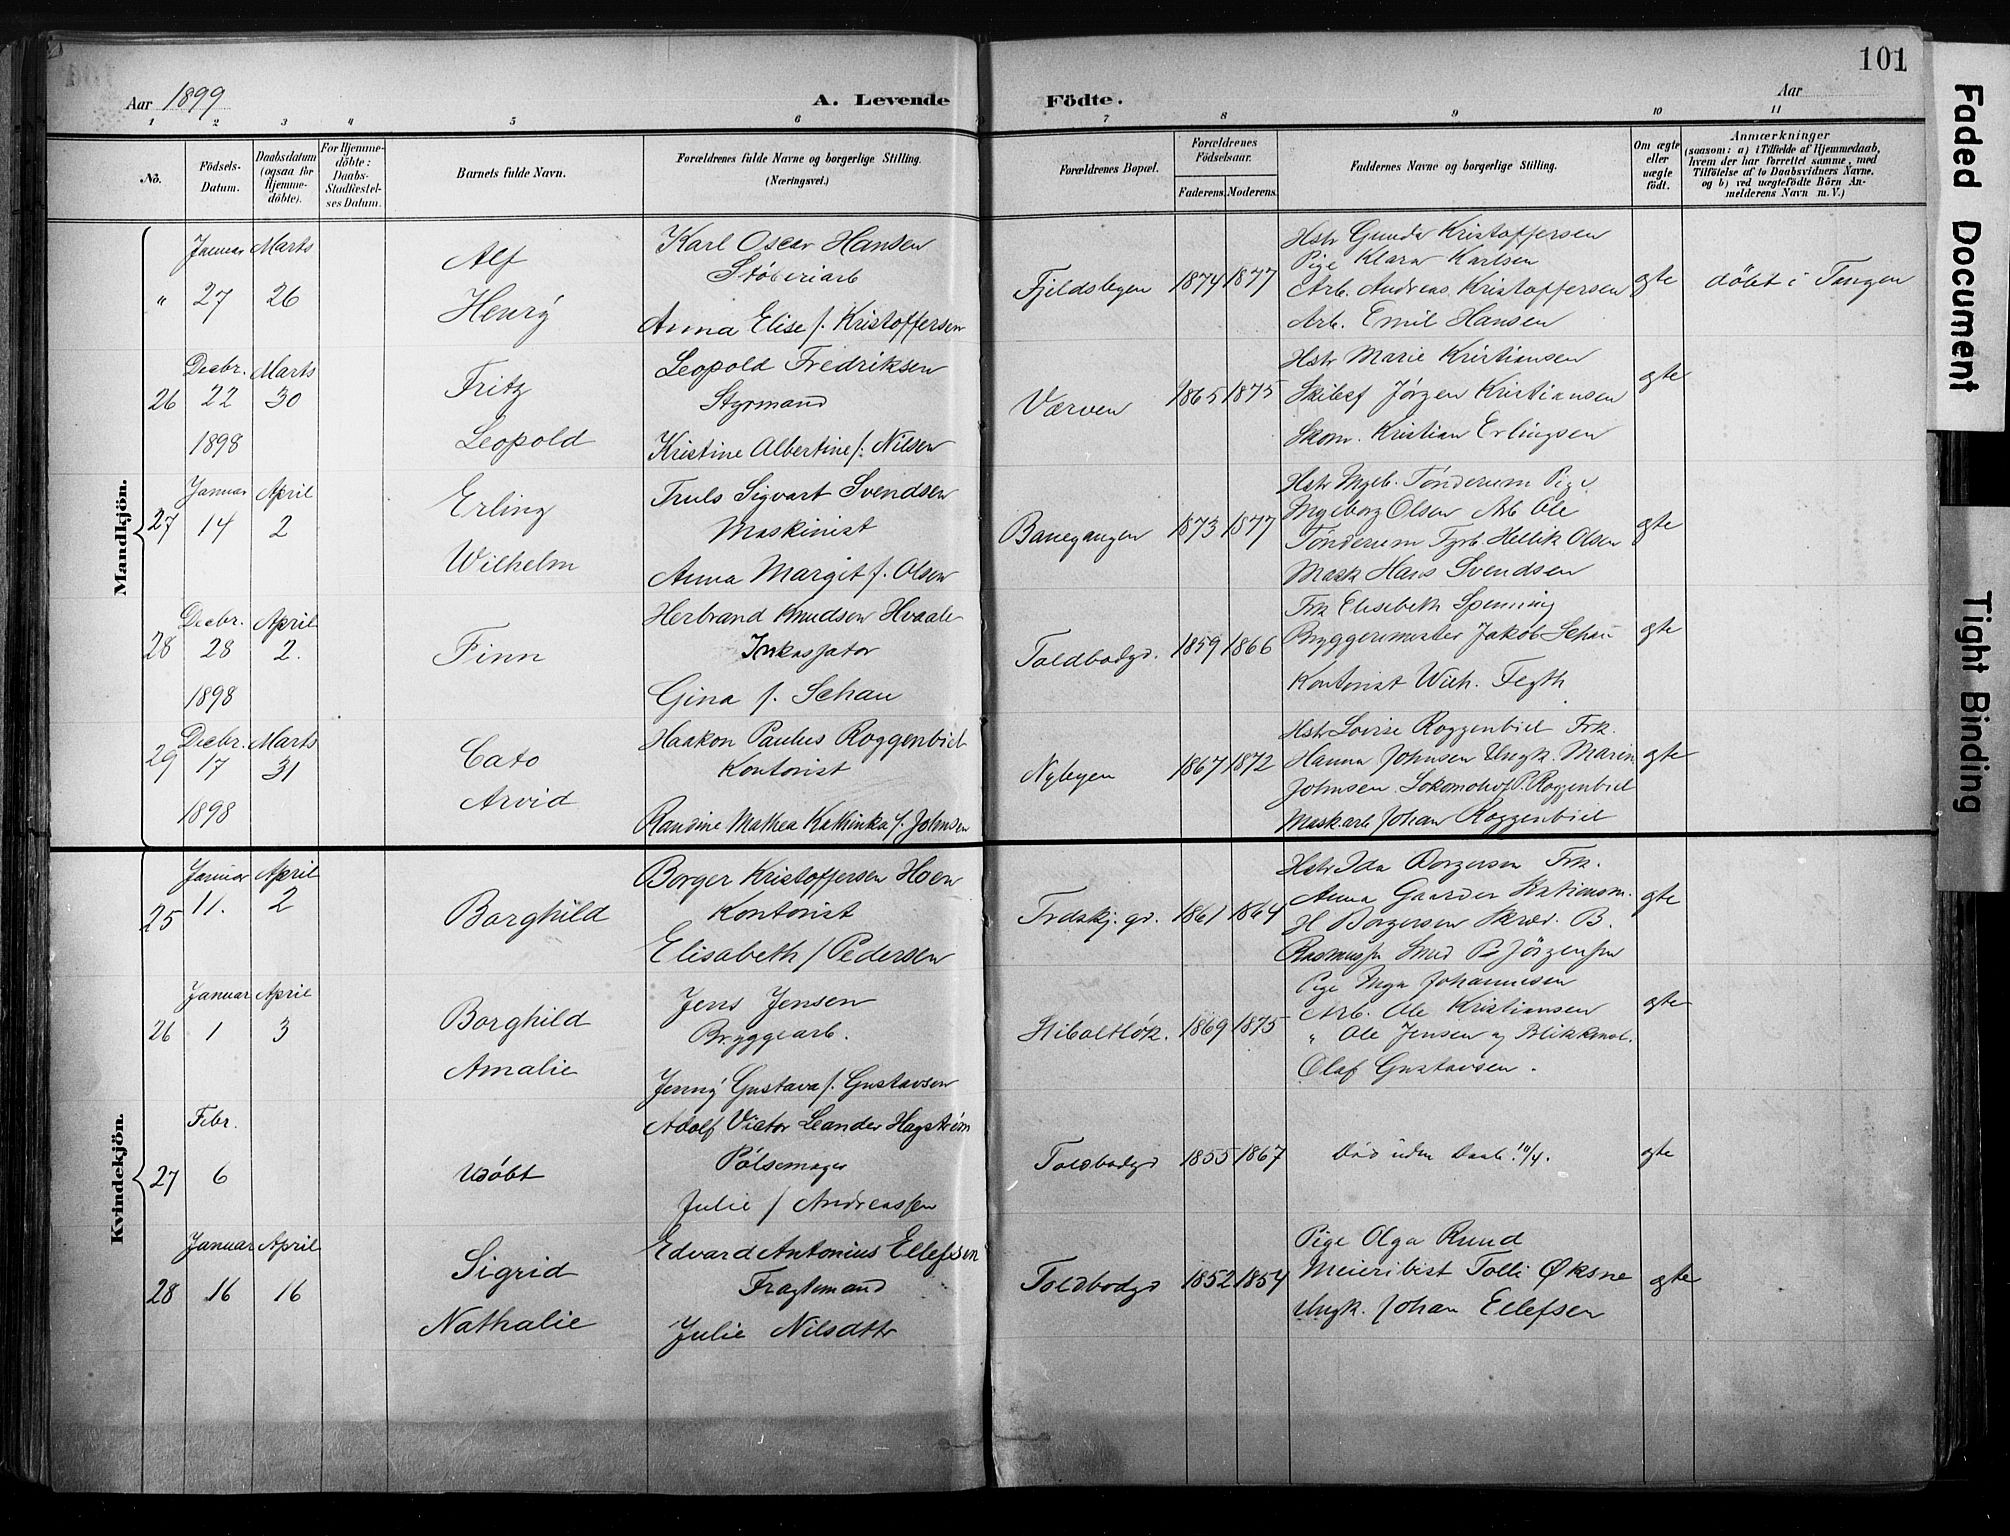 101
Aar 1899
A. Levende Födte.
Aar
1 2 3 4 5 6 7 8 9 10 11
No.
Födsels-Datum.
Daabsdatum (ogsaa for Hjemme-döbte).
For Hjemme-döbte: Daabs-Stadfæstel-ses Datum.
Barnets fulde Navn.
Forældrenes fulde Navne og borgerlige Stilling. (Næringsvei.)
Forældrenes Bopæl.
Forældrenes Födselsaar.
Faderens. Moderens.
Faddernes Navne og borgerlige Stilling.
Om ægte eller uægte födt.
Anmærkninger
(saasom: a) i Tilfælde af Hjemmedaab, hvem der har forrettet samme, med Tilföielse af to Daabsvidners Navne, og b) ved uægtefödte Börn An-melderens Navn m. V.)
Mandkjön.
" Januar 27 Marts 26
Alf Henry
Karl Oscar Hansen
Støberiarb
Anna Elise f. Kristoffersen
Fjeldsbyen 1874 1877
Hstr Gunda Kristoffersen
Pige Klara Karlsen
Arb. Andreas Kristoffersen
Arb. Emil Hansen
ægte
döbt i Tangen
26 Decbr. 22 1898 Marts 30
Fritz Leopold
Leopold Fredriksen
Styrmand
Kristine Albertine f. Nilsen
Værven 1865 1875
Hstr Marie Kristiansen
Skibsf Jørgen Kristiansen
Skom. Kristian Erlingsen
ægte
27 Januar 14 April 2
Erling Wilhelm
Truls Sigvart Svendsen
Maskinist
Anna Margit f. Olsen
Banegangen 1873 1877
Hstr Ingeb. Tønderum Pige
Ingeborg Olsen Arb Ole
Tønderum Tyrb. Hellik Olsen
Mask Hans Svendsen
ægte
28 Decbr. 28 1898 April 2.
Finn
Herbrand Knudsen Hvaale
Inkassator
Gina f. Schau
Toldbodgd. 1859 1866
Frk Elisebeth Spenning
Bryggerimester Jakob Schau
Kontorist Wilh. Fegth
ægte
29 Decbr. 17 1898 Marts 31
Cato Arvid
Haakon Paulus Roggenbiel
Kontorist
Randine Mathea Kathinka f. Johnsen
Nybyen 1867 1872
Hstr Lovise Roggenbiel Frk.
Hanna Johnsen Ungk. Marin
Johnsen Lokomotivf P. Roggenbiel
Maskarb Johan Roggenbiel
ægte
Kvindekjön.
25 Januar 11. April 2
Borghild
Borger Kristoffersen Hoen
Kontorist
Elisabeth f Pedersen
Trdskj. gd. 1861 1864
Hstr Ida Borgersen Frk.
Anna Gaarder Stationsm.
H Borgersen Skræd. B.
Rasmussen Smed P Jörgensen
ægte
26 Januar 1 April 3
Borghild Amalie
Jens Jensen
Bryggearb.
Jenny Gustava f. Gustavsen
Stiboltløk. 1869 1875
Pige Inga Johannesen
Arb. Ole Kristiansen
" Ole Jensen og Blikkensl.
Olaf Gustavsen.
ægte
27 Febr. 6
Udöbt
Adolf Victor Leander Hagstrøm
Pølsemager
Julie f Andreassen
Toldbodgd 1855 1867
Död uden Daab 10/4.
ægte
28 Januar 16 April 16
Sigrid Nathalie
Edvard Antonius Ellefsen
Fragtemand
Julie Nilsdttr
Toldbodgd 1852 1854
Pige Olga Ruud
Meieribest Tolli Øksne
Ungk. Johan Ellefsen
ægte
Faded Document
Tight Binding